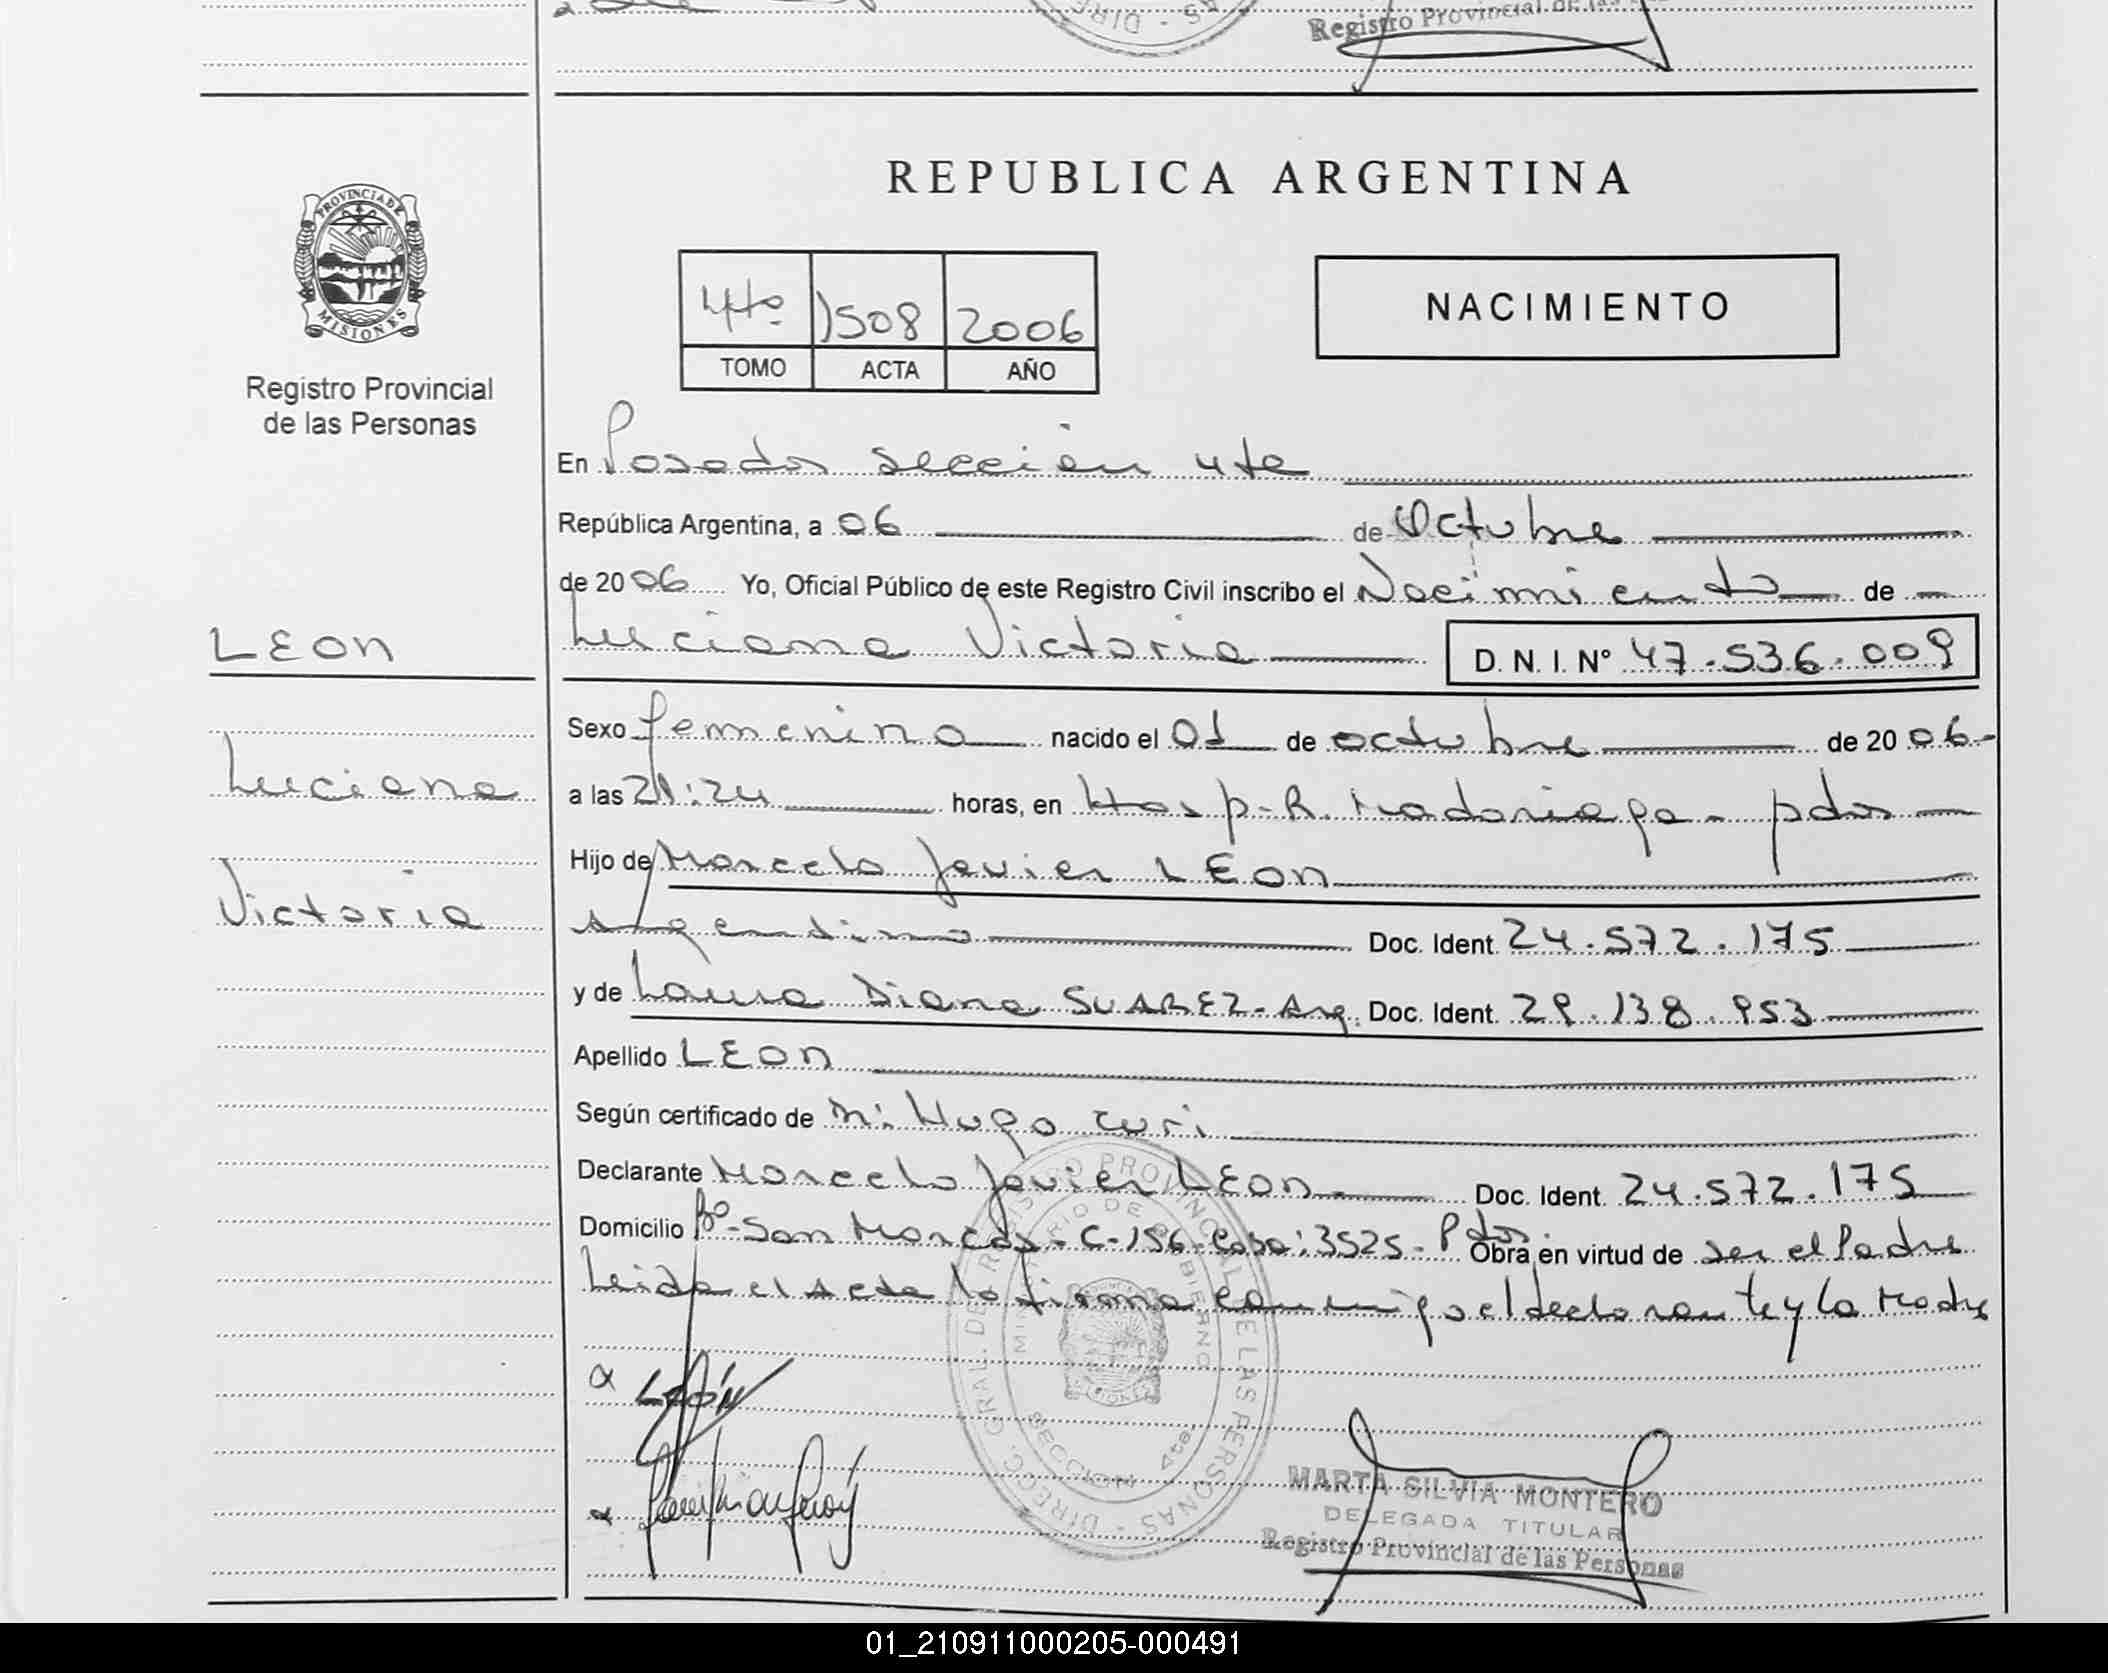 Registro Provincial de las
REPUBLICA ARGENTINA
PROVINCIA DE
MISIONES
Registro Provincial
de las Personas
4to 1508 2006
TOMO ACTA AÑO
NACIMIENTO
En Posadas sección 4ta
República Argentina, a 06 de Octubre
de 2006 Yo, Oficial Público de este Registro Civil inscribo el Nacimiento de
Luciana Victoria D. N. I. N° 47.536.009
LEON
Luciana
Victoria
Sexo femenino nacido el 01 de octubre de 2006
a las 21:24 horas, en Hosp-R. Madariaga - pdas
Hijo de Marcelo Javier LEON
Argentino Doc. Ident. 24.572.175
y de Laura Diana SUAREZ - Arg. Doc. Ident. 29.138.953
Apellido LEON
Según certificado de Hugo
Declarante Marcelo Javier LEON Doc. Ident. 24.572.175
Domicilio Bº San Marcos - C-156 - Casa: 3525 - Pdas. Obra en virtud de ser el Padre
Leida el Acta lo firma conmigo el declarante y la Madre
LEÓN
DIRECC. GRAL. DE REGISTRO PROVINCIAL DE LAS PERSONAS
MINISTERIO DE GOBIERNO
SECCION 4ta.
MARTA SILVIA MONTERO
DELEGADA TITULAR
Registro Provincial de las Personas
01_210911000205-000491